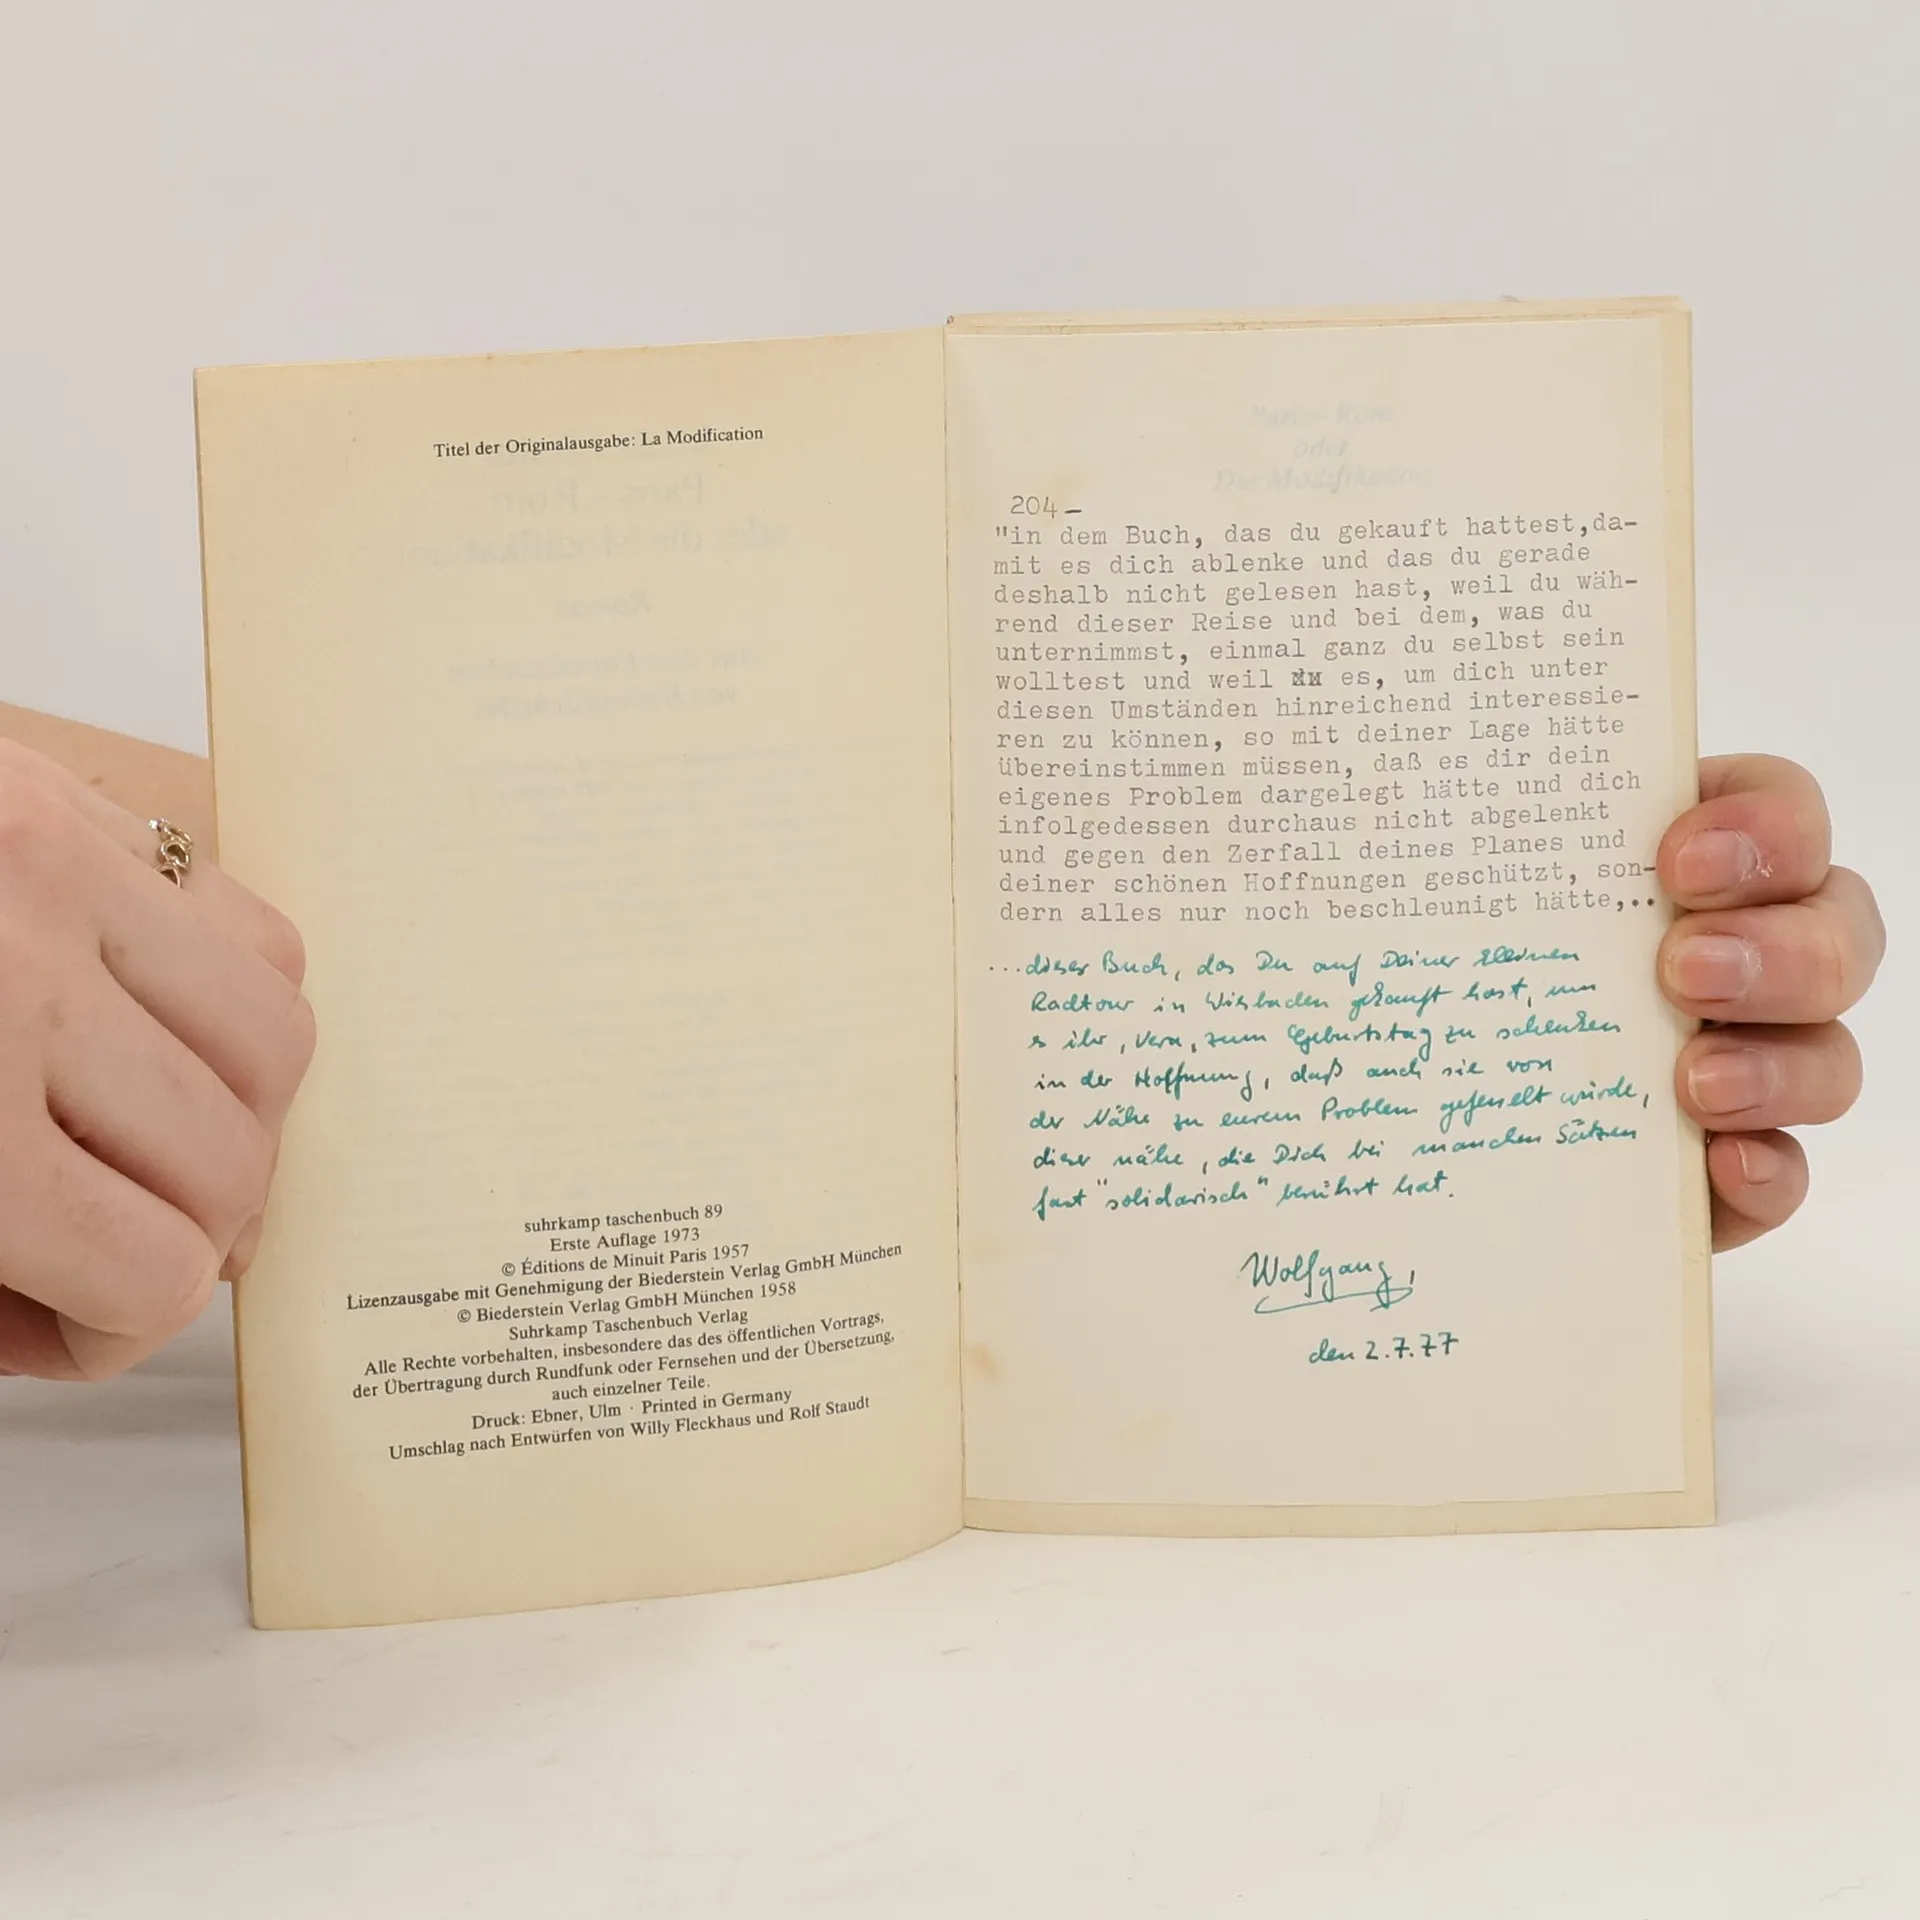 Titel der Originalausgabe: La Modification
suhrkamp taschenbuch 89
Erste Auflage 1973
© Éditions de Minuit Paris 1957
Lizenzausgabe mit Genehmigung der Biederstein Verlag GmbH München
© Biederstein Verlag GmbH München 1958
Suhrkamp Taschenbuch Verlag
Alle Rechte vorbehalten, insbesondere das des öffentlichen Vortrags,
der Übertragung durch Rundfunk oder Fernsehen und der Übersetzung,
auch einzelner Teile.
Druck: Ebner, Ulm · Printed in Germany
Umschlag nach Entwürfen von Willy Fleckhaus und Rolf Staudt
Paris – Rom
oder
Die Modifikation
204–
"in dem Buch, das du gekauft hattest,da-
mit es dich ablenke und das du gerade
deshalb nicht gelesen hast, weil du wäh-
rend dieser Reise und bei dem, was du
unternimmst, einmal ganz du selbst sein
wolltest und weil es, um dich unter
diesen Umständen hinreichend interessie-
ren zu können, so mit deiner Lage hätte
übereinstimmen müssen, daß es dir dein
eigenes Problem dargelegt hätte und dich
infolgedessen durchaus nicht abgelenkt
und gegen den Zerfall deines Planes und
deiner schönen Hoffnungen geschützt, son-
dern alles nur noch beschleunigt hätte,..
...dieses Buch, das Du auf Deiner kleinen
Radtour in Wiesbaden gekauft hast, um
es ihr, Vera, zum Geburtstag zu schenken
in der Hoffnung, daß auch sie von
der Nähe zu eurem Problem gefesselt würde,
dieser Nähe, die Dich bei manchen Sätzen
fast "solidarisch" berührt hat.
Wolfgang,
den 2.7.77